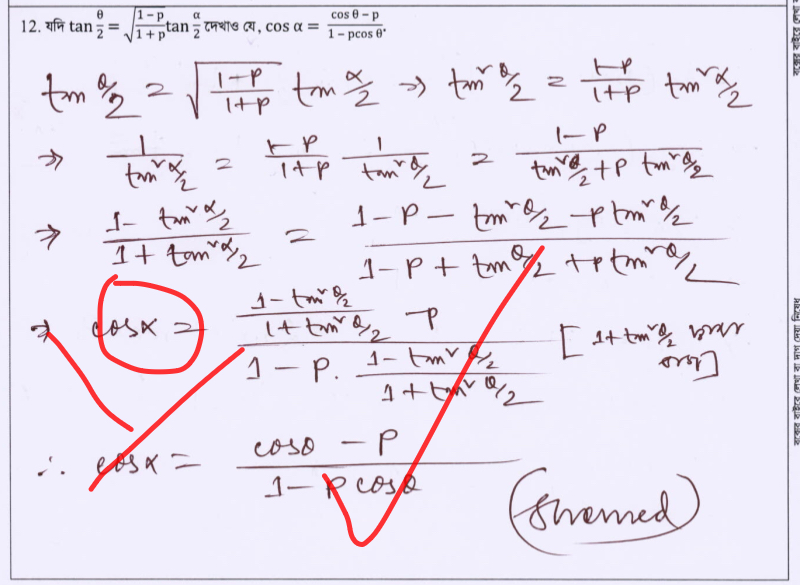 12. যদি tan θ/2 = √((1−p)/(1+p)) tan α/2 দেখাও যে, cos α = (cos θ − p)/(1 − pcos θ).
tan θ/2 = √((1−P)/(1+P)) tan α/2 ⇒ tan² θ/2 = (1−P)/(1+P) tan² α/2
⇒ 1/(tan² α/2) = (1−P)/(1+P) 1/(tan² θ/2) = (1−P)/(tan² θ/2 + P tan² θ/2)
⇒ (1 − tan² α/2)/(1 + tan² α/2) = (1−P − tan² θ/2 − P tan² θ/2)/(1−P + tan² θ/2 + P tan² θ/2)
⇒ cosα = ((1 − tan² θ/2)/(1 + tan² θ/2) − P)/(1 − P. (1 − tan² θ/2)/(1 + tan² θ/2)) [1 + tan² θ/2
∴ cosα = (cosθ − P)/(1 − P cosθ)
(showed)